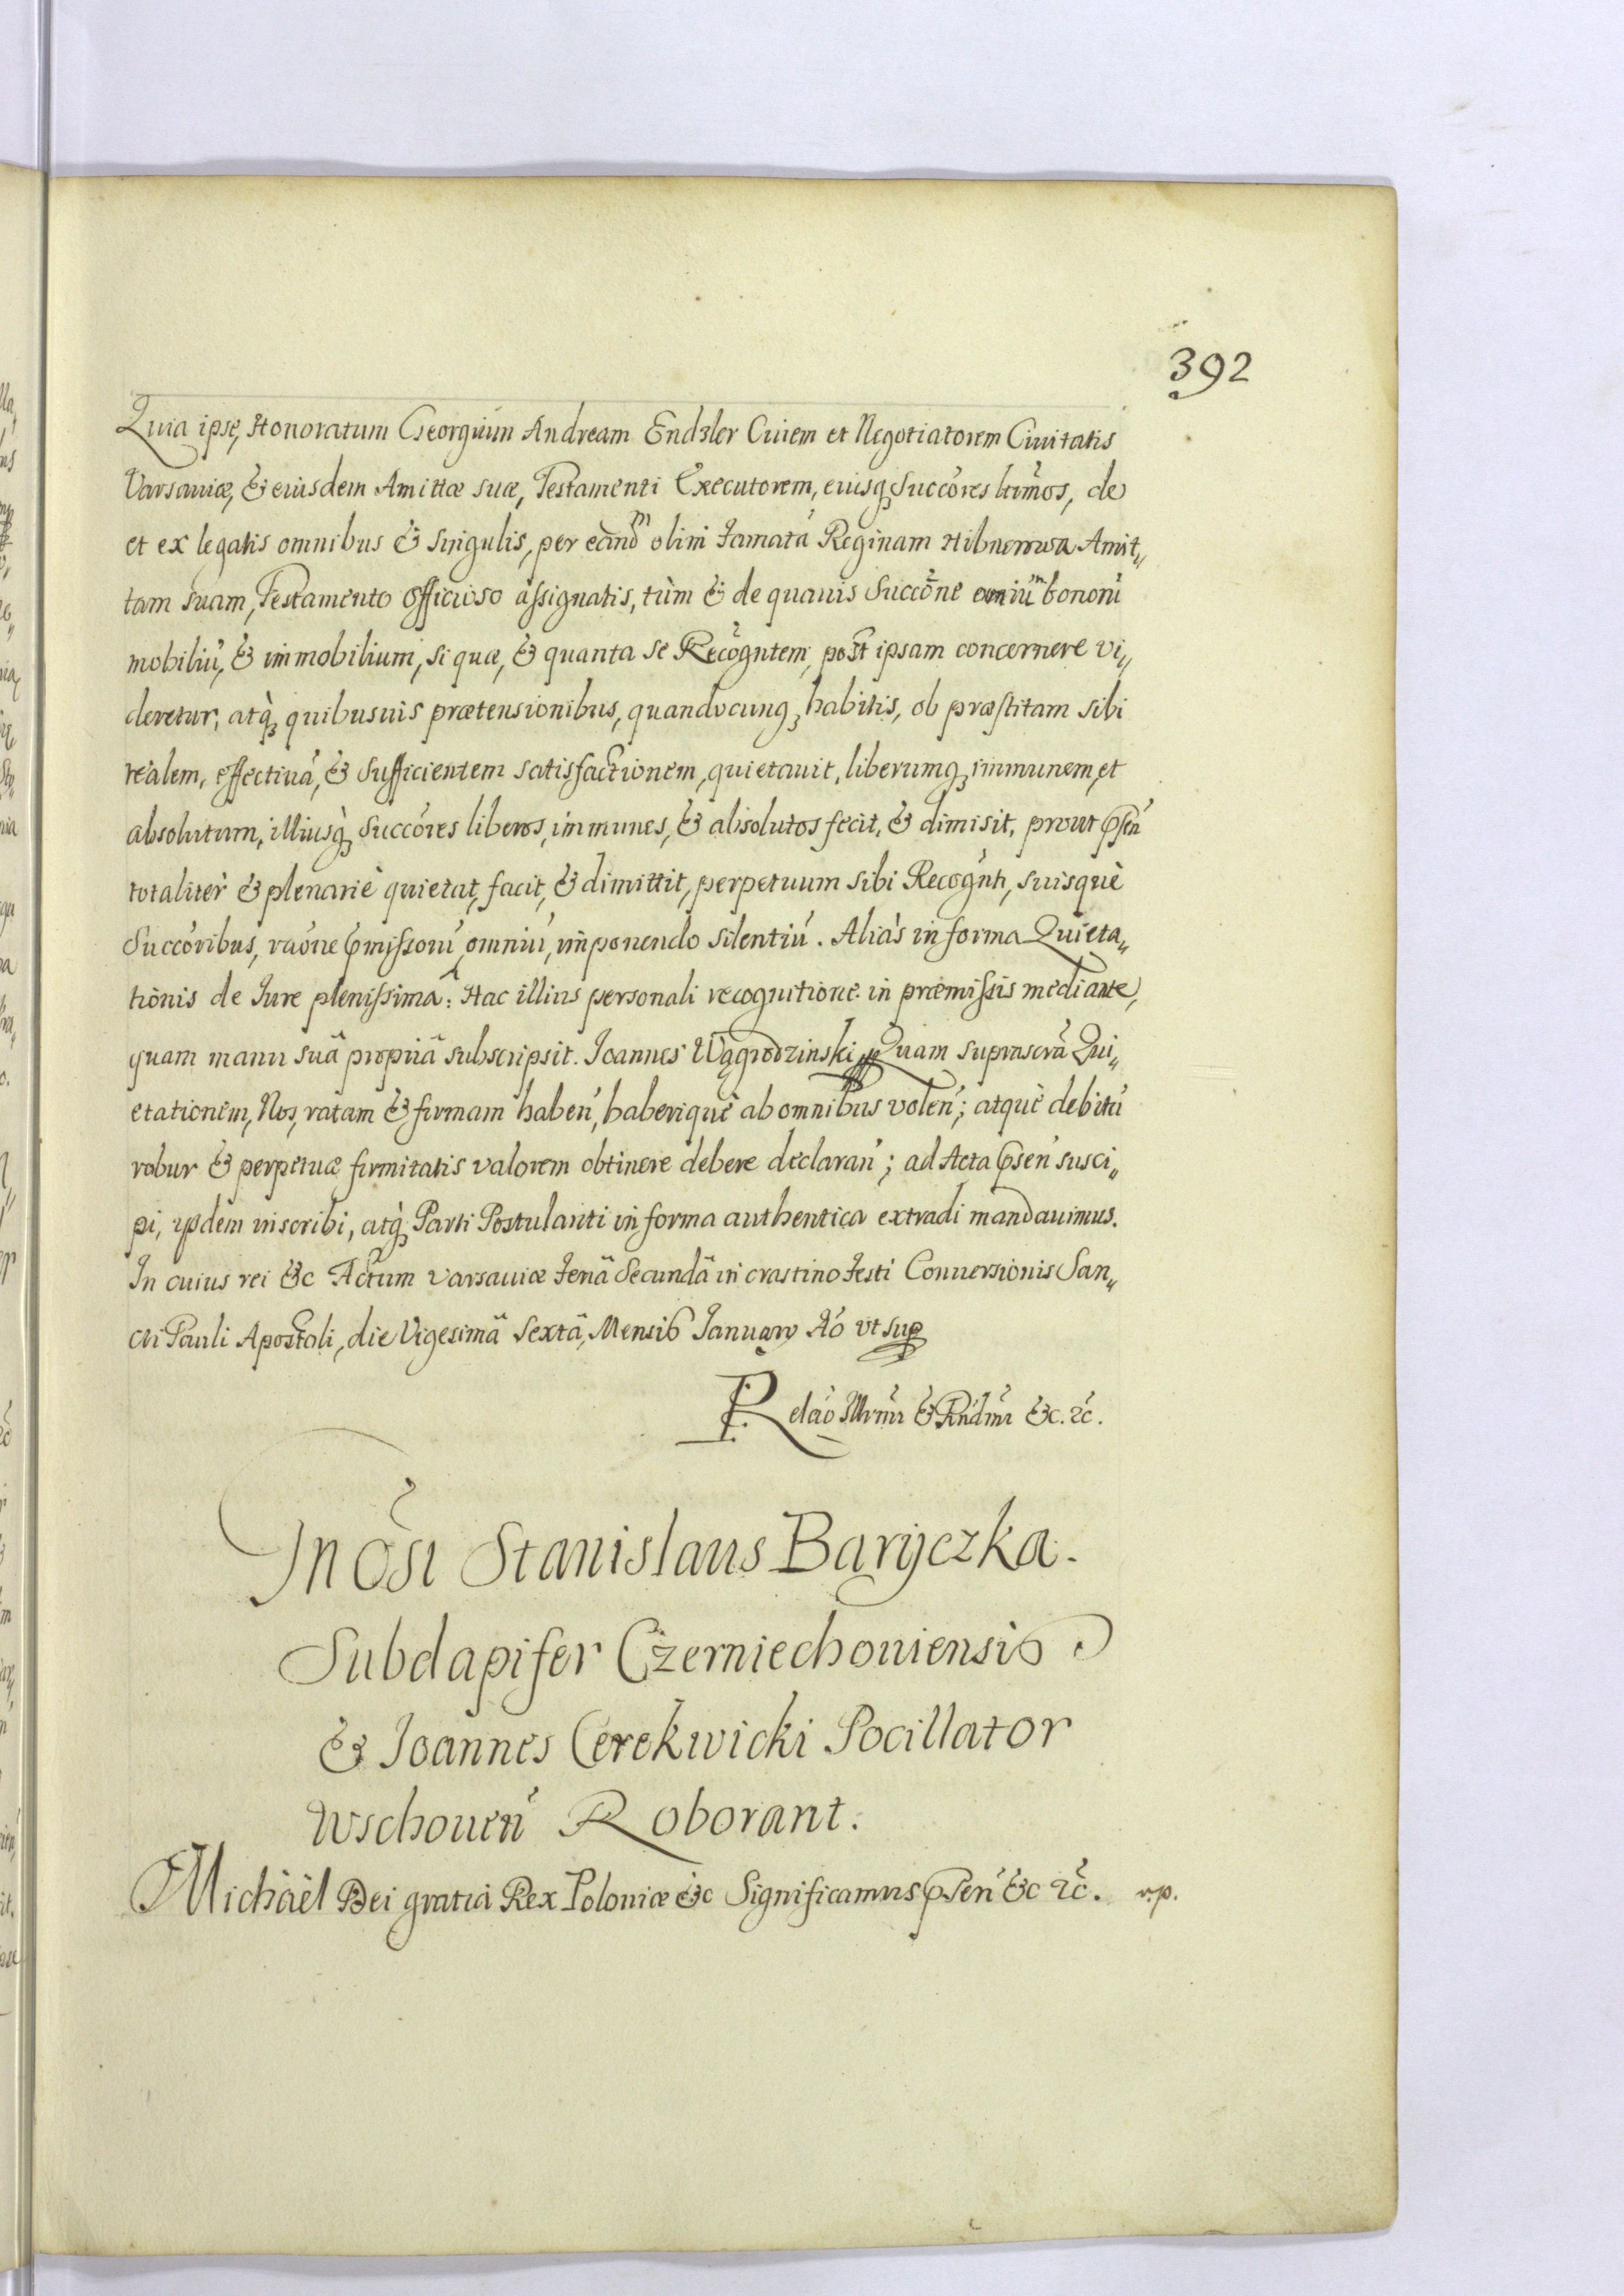 392
Quia ipse, Honoratum Georgium Andream Endzler Ciuem et Negotiatorem Ciuitatis
Varsauiæ, & eiusdem Amittæ suæ, Testamenti Executorem, eiusq, Succóres ltimos, de
et ex legatis omnibus & singulis, per eandm olim famatá Reginam Hibnerowa Amit„
tam suam, Testamento officioso assignatis, tùm & de quauis Succóne omniũm bonorú
mobiliú, & immobilium, si quæ, & quanta se Recógntem, post ipsam concernere vi„
deretur, atq̀, quibusuis prætensionibus, quandocunq, habitis, ob præstitam sibi
realem, effectiuá, & sufficientem satisfactionem, quietauit, liberumq, immunem, et
absolutum, illiusq̀, Succóres liberos, immunes, & absolutos fecit, & dimisit, prout pstá
totalitèr & plenariè quietat, facit, & dimittit, perpetuum sibi Recognti, suisquè
Succóribus, raóne pmissorú omniú, imponendo silentiú. Aliàs in forma Quieta„
tionis de Iure plenissima: Hac illius personali recognitione in præmissis mediante,
quam manu suâ propriâ subscripsit. Joannes Wągrodzinski Quam suprascrã Qui„
etationem, Nos, ratam & firmam habeń, haberiquè ab omnibus voleń; atquè debitú
robur & perpetuæ firmitatis valorem obtinere debere declarań; ad Acta pseń susci„
pi, ijsdem inscribi, atq̀, Parti Postulanti in forma authentica extradi mandauimus.
In cuius rei &c Actum Varsauiæ feriâ Secundâ in crastino festi Conuersionis San„
cti Pauli Apostoli, die Vigesimâ Sextâ, Mensis January Aó vt sup
Relaó Illrmi & Rndmi &c. rc.
Jn Osi Stanislaus Baryczka.
Subdapifer Czerniechouiensis
& Joannes Cerekwicki Pocillator
Wschoueń Roborant.
Michäel Dei gratiâ Rex Poloniæ &c Significamus pseń &c rc. r.p.